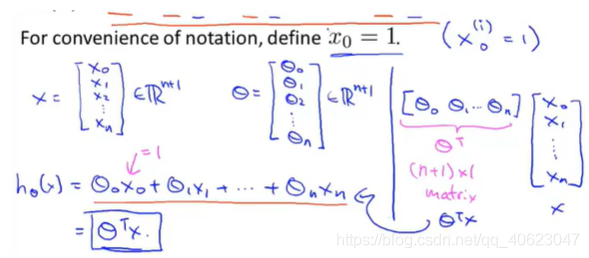 For convenience of notation, define x₀ = 1. (x₀⁽ⁱ⁾ = 1)
x = [x₀ x₁ x₂ ⋮ xₙ] ∈ ℝⁿ⁺¹
θ = [θ₀ θ₁ θ₂ ⋮ θₙ] ∈ ℝⁿ⁺¹
[θ₀ θ₁ ... θₙ] [x₀ x₁ ⋮ xₙ]
θᵀ
(n+1) x 1
matrix
x
θᵀx
=1
h_θ(x) = θ₀x₀ + θ₁x₁ + ... + θₙxₙ
= θᵀx.
https://blog.csdn.net/qq_40623047